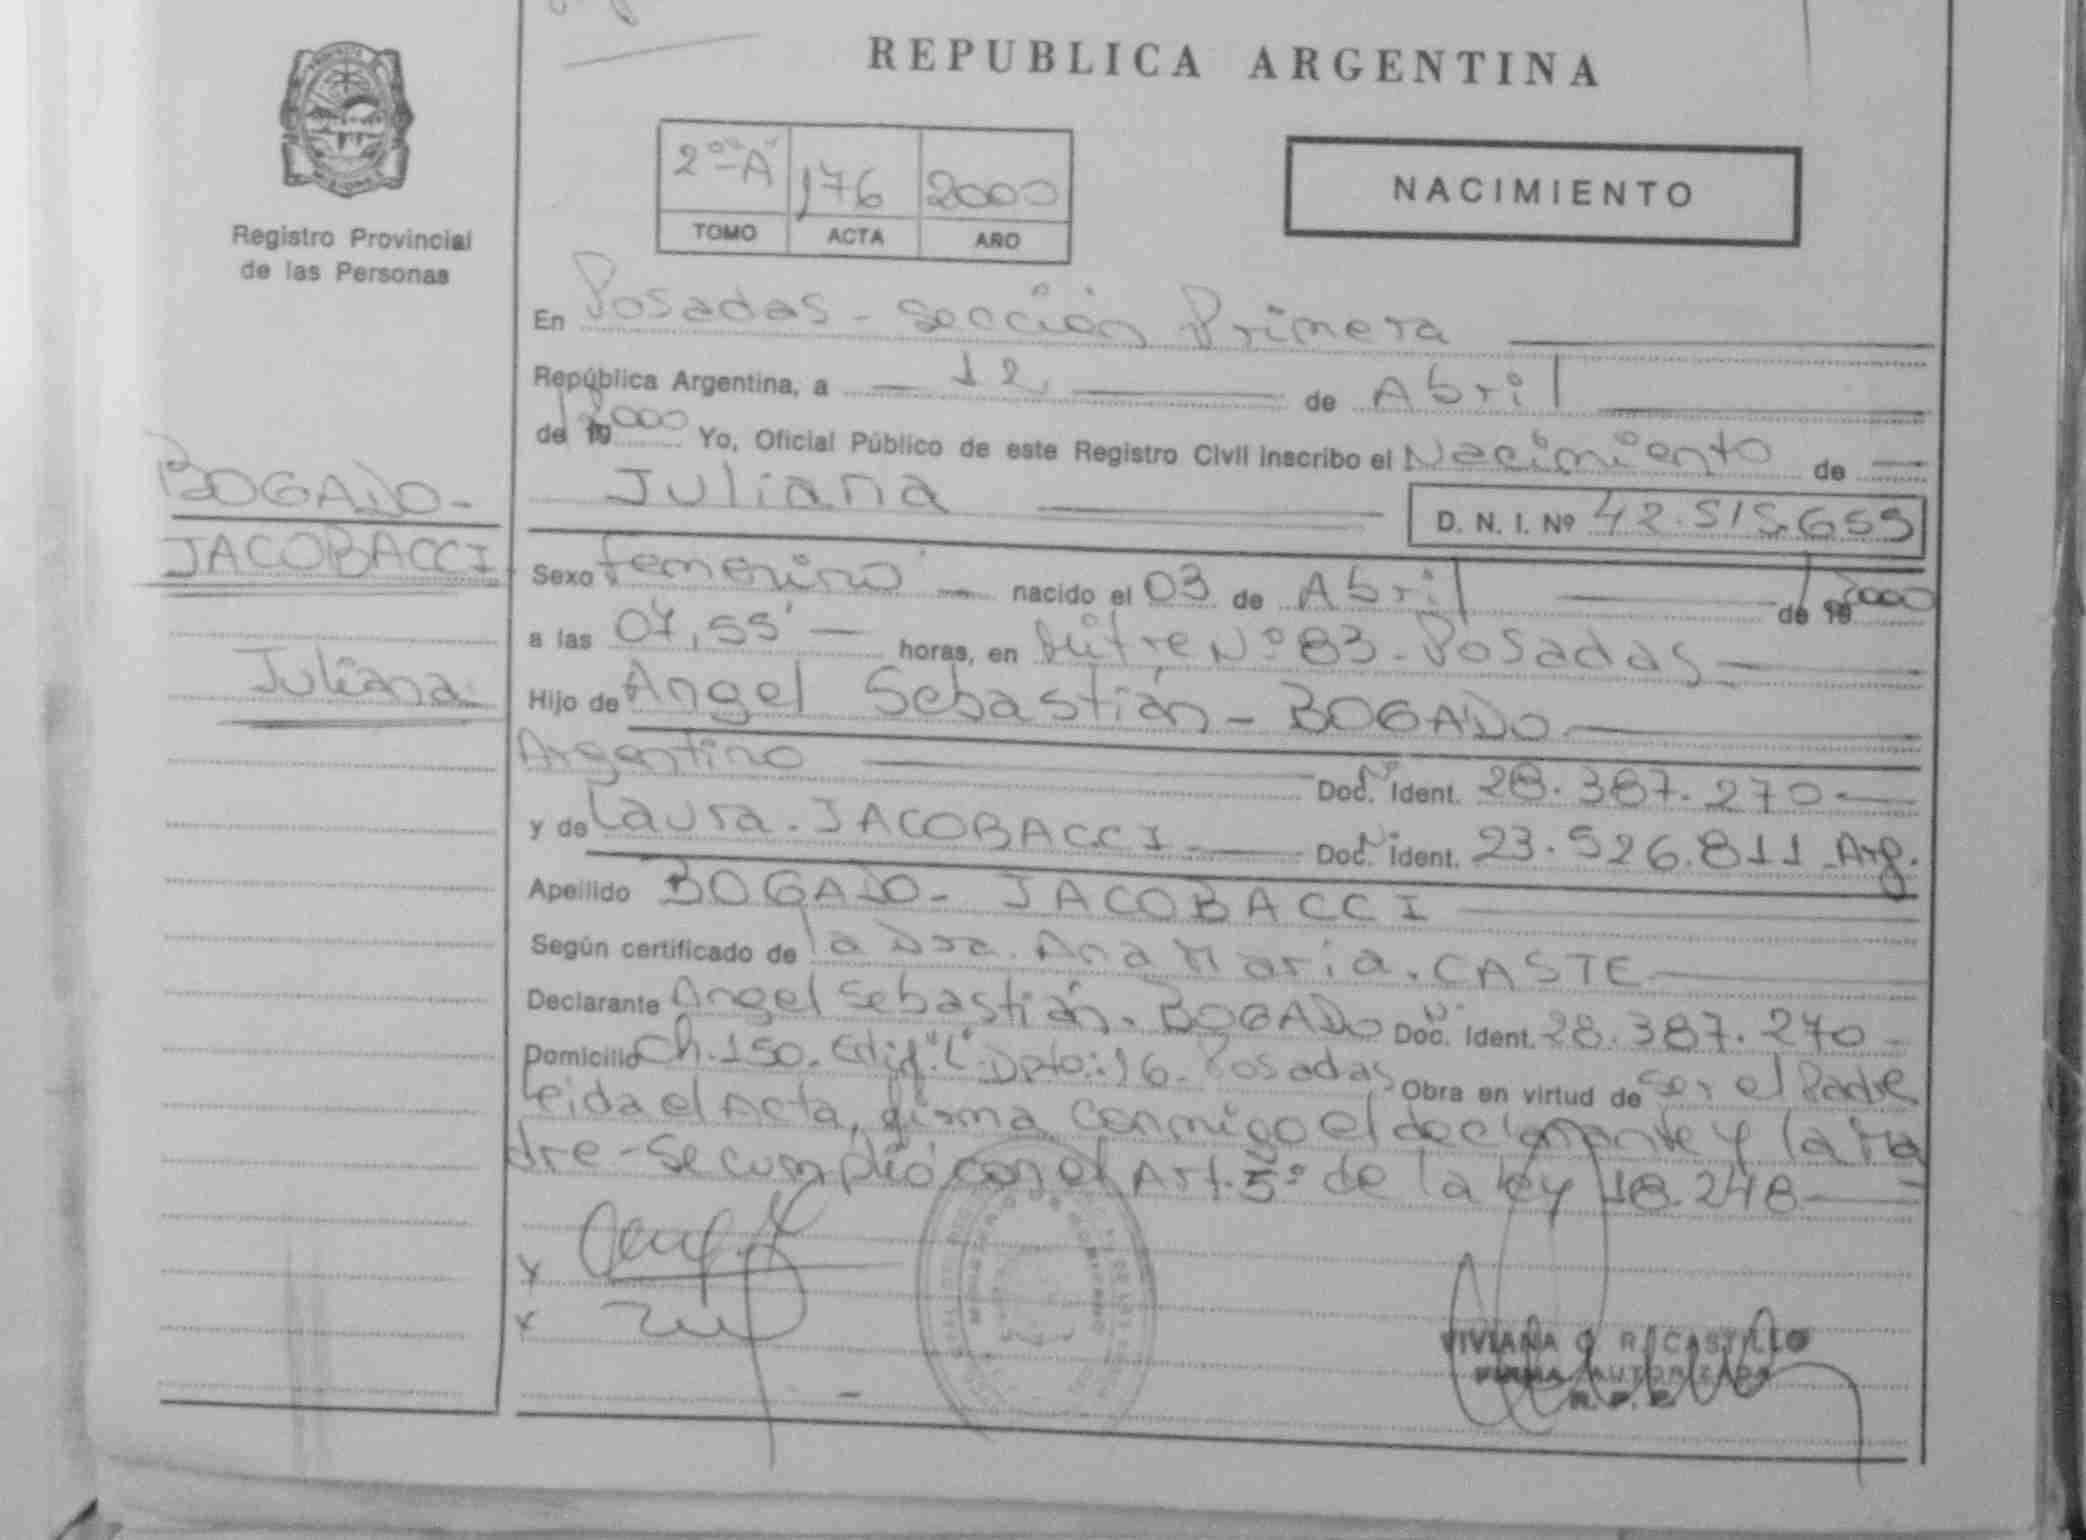 REPUBLICA ARGENTINA
2º "A" 176 2000
TOMO ACTA AÑO
NACIMIENTO
Registro Provincial
de las Personas
En Posadas - Sección Primera
República Argentina, a 12 de Abril
de 2000 Yo, Oficial Público de este Registro Civil inscribo el Nacimiento de
Juliana D. N. I. Nº 42.515.659
BOGADO-
JACOBACCI
Juliana
Sexo femenino nacido el 03 de Abril de 2000
a las 07,55' horas, en Mitre Nº 83 - Posadas
Hijo de Angel Sebastián - BOGADO
Argentino Doc. Nº Ident. 28.387.270
y de Laura. JACOBACCI Doc. Nº Ident. 23.526.811 Arg.
Apellido BOGADO - JACOBACCI
Según certificado de la Dra. Ana Maria. CASTE
Declarante Angel Sebastián. BOGADO Doc. Nº Ident. 28.387.270
Domicilio Ch. 150. Edif. "L" Dpto: 16. Posadas Obra en virtud de ser el Padre
Leida el Acta, firma conmigo el declarante y la Ma
dre - Se cumplió con el Art. 5º de la ley 18.248
x
x
VIVIANA R. CASTILLO
FIRMA AUTORIZADA
R. P. P.